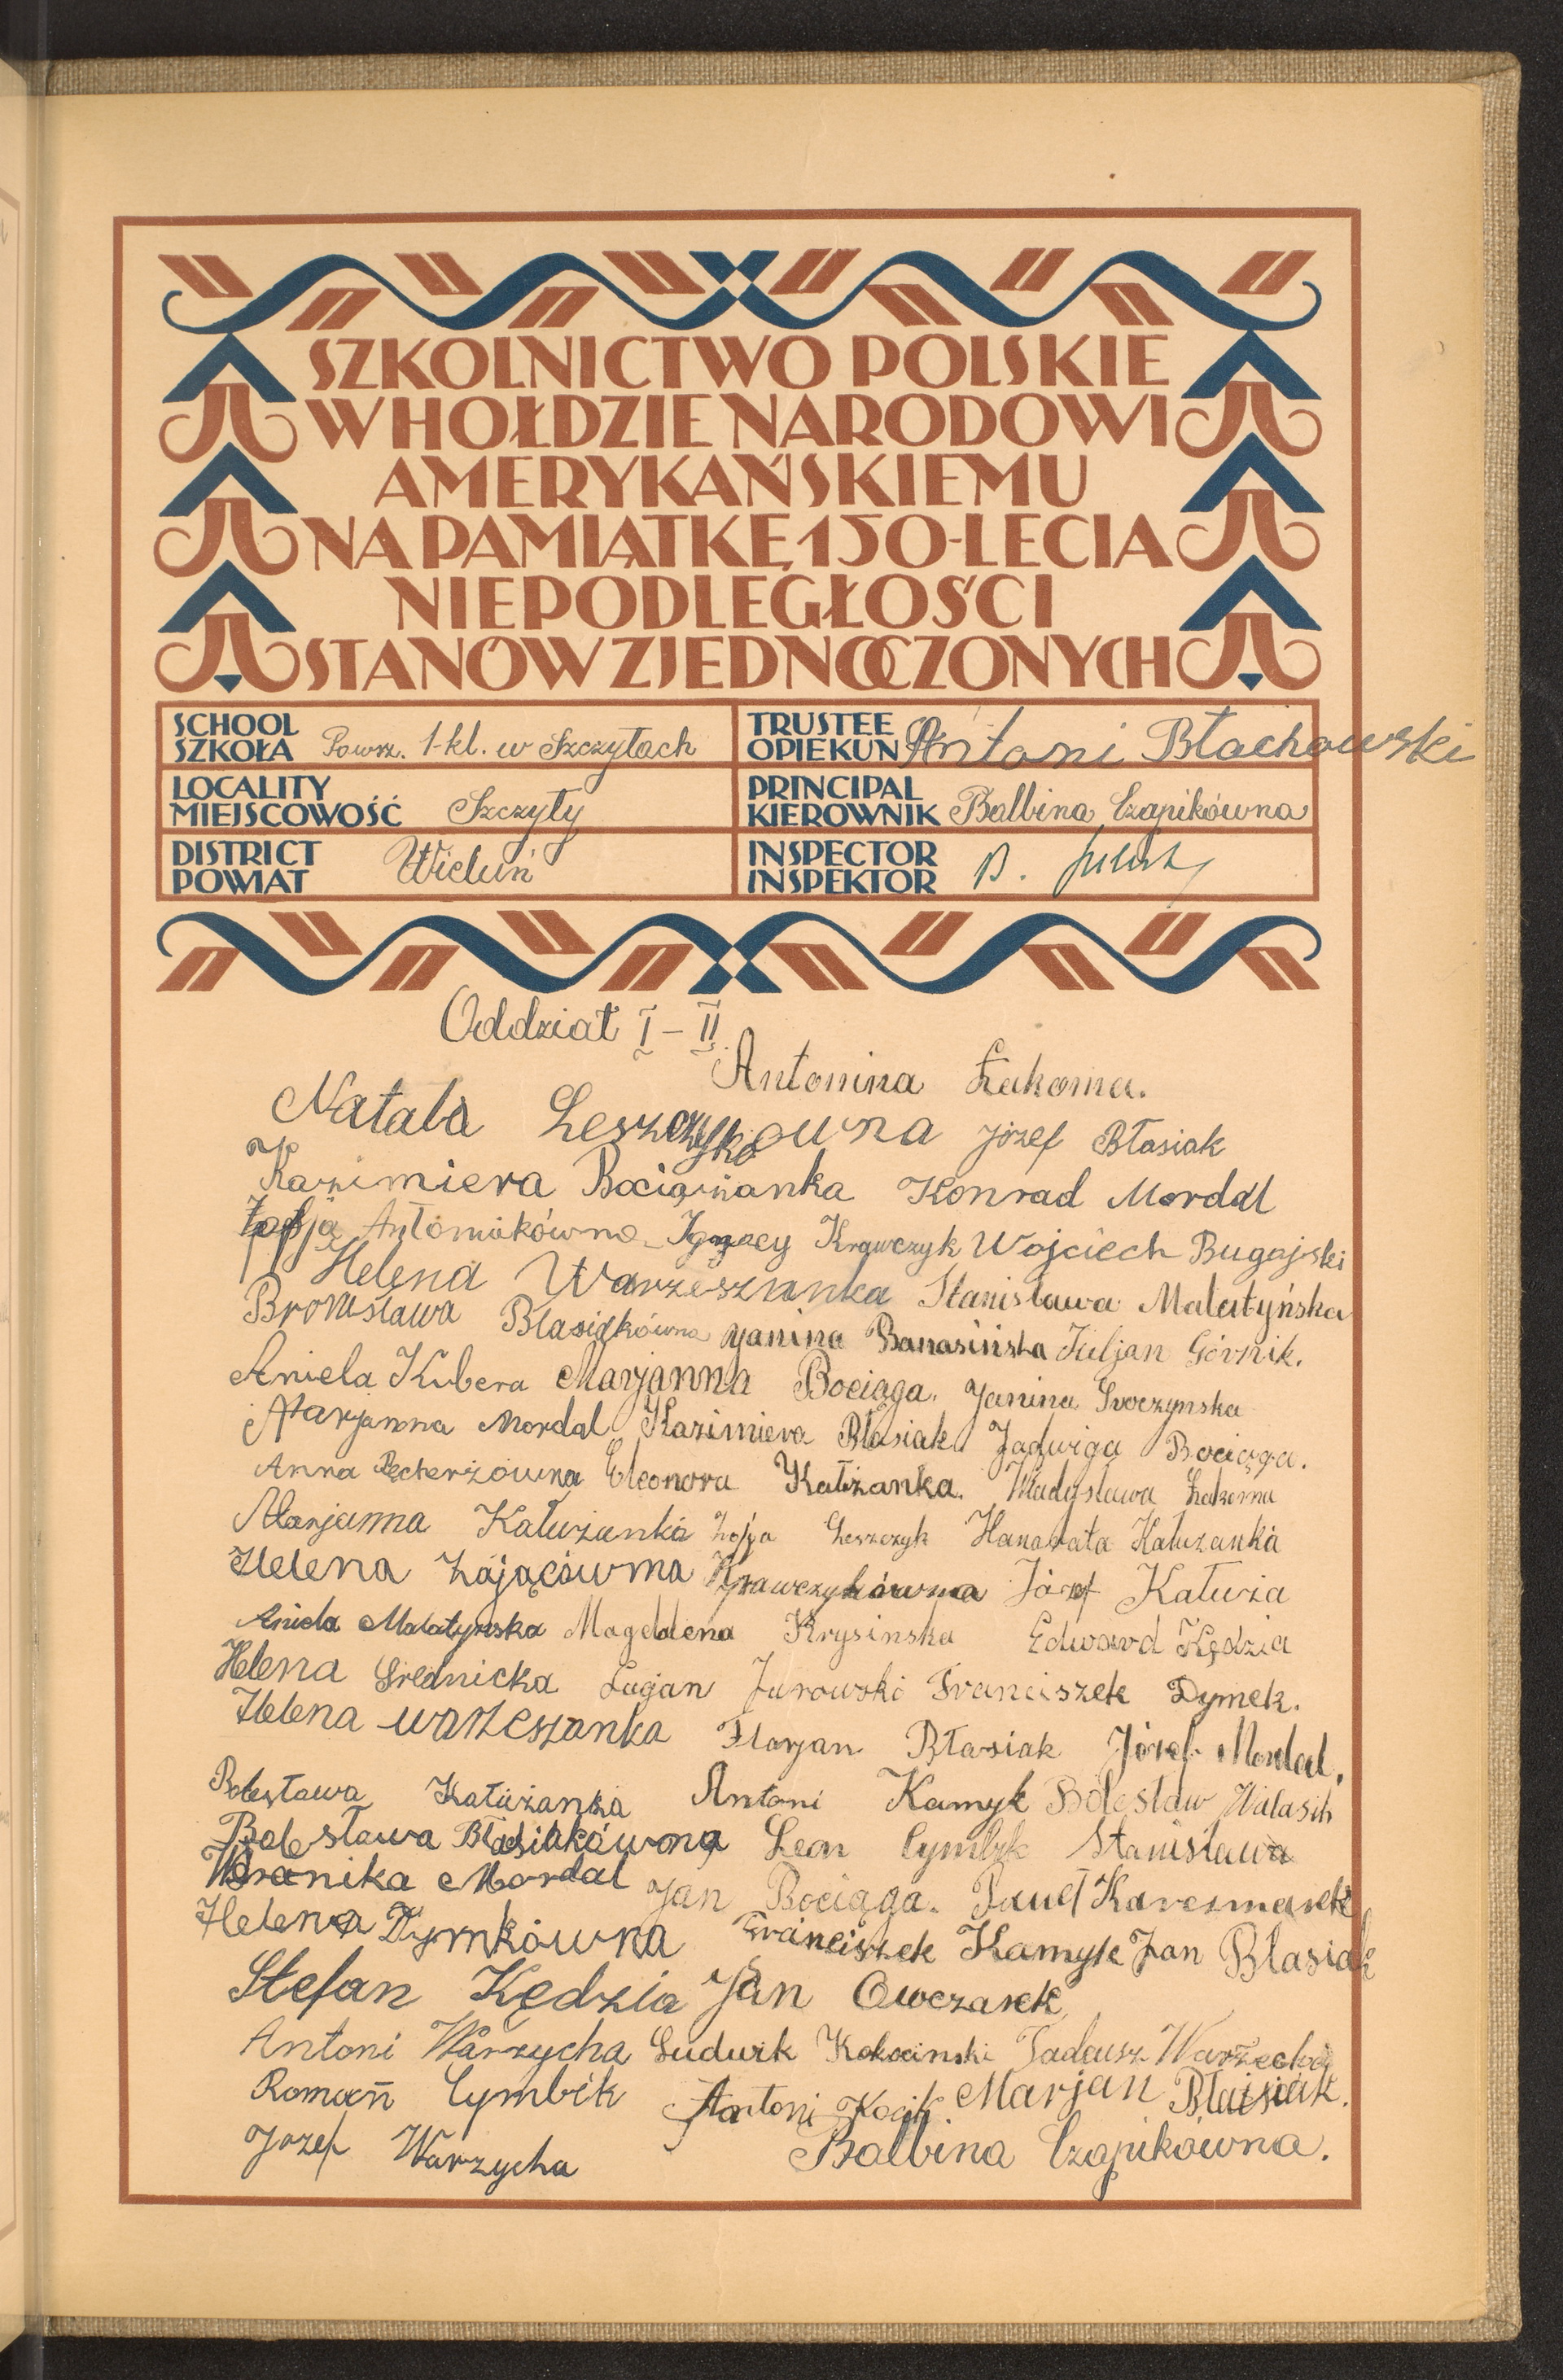 SZKOLNICTWO POLSKIE
W HOŁDZIE NARODOWI
AMERYKAŃSKIEMU
NA PAMIĄTKĘ 150-LECIA
NIEPODLEGŁOŚCI
STANÓW ZJEDNOCZONYCH
SCHOOL
SZKOŁA Powsz. 1-kl. w Szczytach
TRUSTEE
OPIEKUN Antoni Błachowski
LOCALITY
MIEJSCOWOŚĆ Szczyty
PRINCIPAL
KIEROWNIK Balbina Czapikówna
DISTRICT
POWIAT Wieluń
INSPECTOR
INSPEKTOR B.
Oddział I-II.
Antonina Łakoma.
Natala Leszczykowna Józef Błasiak
Kazimiera Bociążanka Konrad Mordal
Zofja Antoniakówna Ignacy Krawczyk Wojciech Bugajski
Helena Warzeszanka Stanisława Malatyńska
Bronisława Blasiakówna Janina Banasińska Juljan Górnik.
Aniela Kubera Marjanna Bociąga. Janina
Marjanna Mordal Kazimiera Błasiak Jadwiga Bociąga.
Anna Pęcherzówna Eleonora Kałużanka. Władysława Łakoma
Marjanna Kałużanka Zofja Leszczyk Hanorata Kałużanka
Helena Zającówma Krawczykówna Józef Kałuża
Aniela Malatynska Magdalena Krysinska Edward Kędzia
Helena Srednicka Ługjan Jurowski Franciszek Dymek.
Helena warzeszanka Florjan Błasiak Józef Mordal.
Bolesława Kałużanka Antoni Kamyk Bolesław Walasik
Bolesława Błasiakówna Leon Cymbik Stanisława
Weronika Mordal Jan Bociąga. Paweł Karczmarek
Helena Dymkówna Franciszek Kamyk Jan Błasiak
Stefan Kędzia Jan Owczarek
Antoni Warzycha Ludwik Kokocinski Tadeusz Warzecha
Roman Cymbik Antoni Kocik Marjan Błasiak.
Jozef Warzycha Balbina Czapikówna.